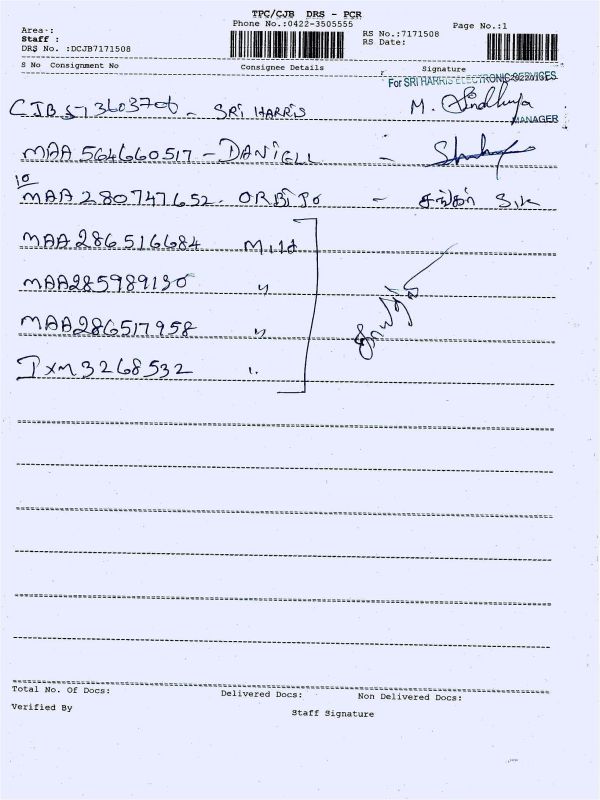 TPC/CJB DRS - PCR
Area.: Phone No.:0422-3505555 Page No.:1
Staff : RS No.:7171508
DRS No. :DCJB7171508 RS Date:
S No Consignment No Consignee Details Signature
For SRI HARRIS ELECTRONIC SERVICES
CJB 513603706 - SRI HARRIS M. Sindhuja
MANAGER
MAA 564660517 - DANIELL -
10
MAA 280747652. ORBITO - சங்கர் S.K
MAA 286516684 Mild
MAA285989130 "
MAA286517958 "
IXM3268532 "
Total No. Of Docs: Delivered Docs: Non Delivered Docs:
Verified By Staff Signature